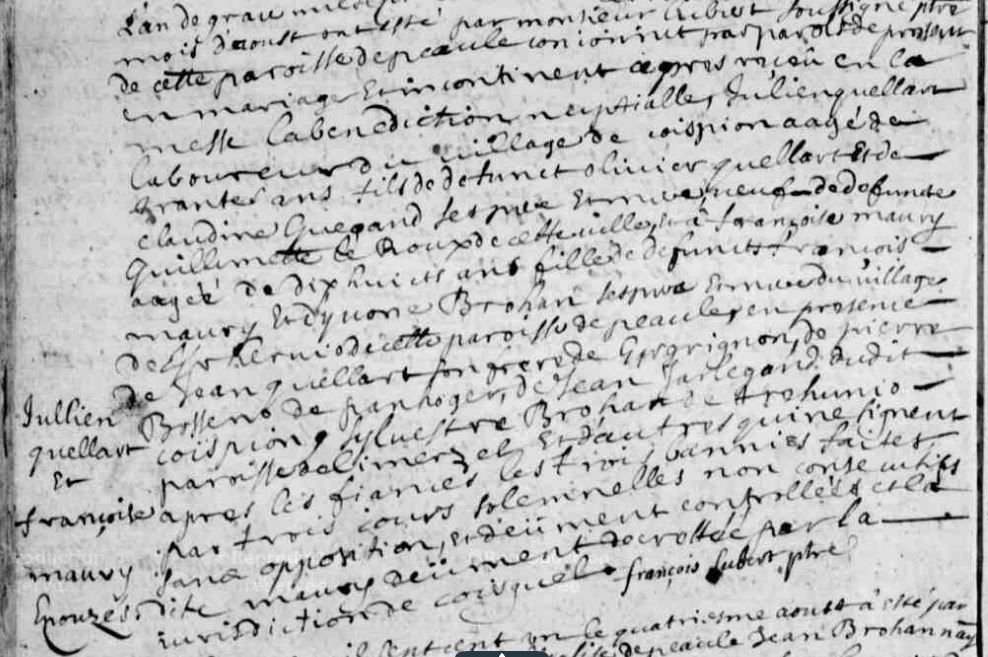 L'an de grace mil
mois d'aoust ont esté par monsieur Lubert soussigné ptre
de cette paroisse de peaule conioinct par parolle de present
en mariage Et incontinent apres receu en la
messe la benediction neuptialle, Julien quellart
laboureur du village de coispion aagé de
trante ans fils de defunct olivier quellart Et de
claudine Guegand ses pere Et mere, veuf de defuncte
Guillemette le Roux de cette ville, Et à françoise maury
aagée de dix huict ans fille de defunct françois
maury Et d'yvone Brohan ses pere Et mere du village
de de cette paroisse de peaule, en presence
de Jean quellart son frere de de pierre
Bosseno de de Jean Jarlegand dudit
coispion, sylvestre Brohan de
paroisse de limerzel Et d'autres qui ne signent
apres les fiances les trois bannies faites
par trois jours solemnelles non consecutifs
sans opposition, Et deüment controllées et la
dite maury deüment decrettée par la
iurisdiction de françois Lubert ptre
Jullien
quellart
Et
françoise
maury
Epouzés
le quatriesme aoust à esté par
de peaule Jean Brohan